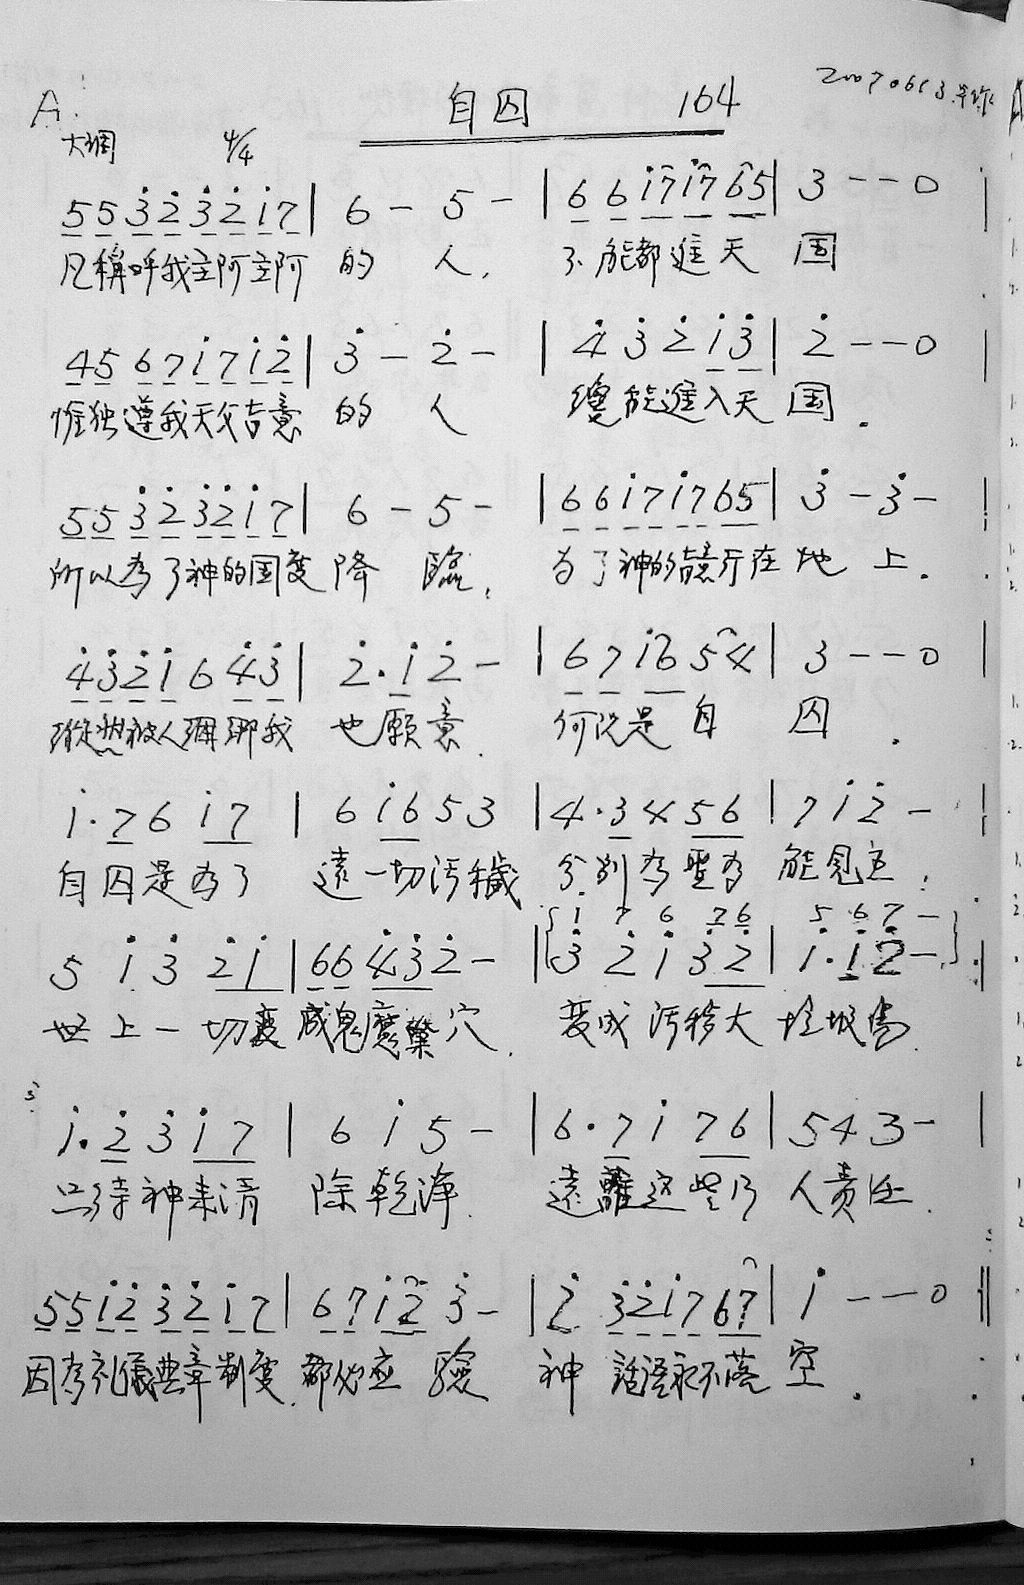 自囚 164
A.
大调 4/4
5 5 3̇ 2̇ 3̇ 2̇ 1̇ 7 | 6 - 5 - | 6 6 1̇ 7 1̇ 7 6 5 | 3 - - 0
凡稱呼我主阿主阿 的 人, 不能都進天 国
4 5 6 7 1̇ 7 1̇ 2̇ | 3̇ - 2̇ - | 4̇ 3̇ 2̇ 1̇ 3̇ | 2̇ - - 0
惟独遵我天父旨意 的 人 纔能進入天 国.
5 5 3̇ 2̇ 3̇ 2̇ 1̇ 7 | 6 - 5 - | 6 6 1̇ 7 1̇ 7 6 5 | 3̇ - 3̇ -
所以為了神的国度 降 臨, 为了神的旨意行在 地 上.
4̇ 3̇ 2̇ 1̇ 6 4̇ 3̇ | 2̇ . 1̇ 2̇ - | 6 7 1̇ 6 5 4 | 3 - - 0
縱然被人綑綁我 也願意. 何况是自 囚.
1̇ . 7 6 1̇ 7 | 6 1̇ 6 5 3 | 4 . 3 4 5 6 | 7 1̇ 2̇ -
自囚是為了 遠一切污穢 分别為聖為 能見主,
{1̇ 7 6 7 6 5 6 7 -}
5 1̇ 3̇ 2̇ 1̇ | 6 6 4̇ 3̇ 2̇ - | 3̇ 2̇ 1̇ 3̇ 2̇ | 1̇ . 1̇ 2̇ -
世上一切變 成鬼魔巢穴. 变成污秽大 垃圾场
1̇ . 2̇ 3̇ 1̇ 7 | 6 1̇ 5 - | 6 . 7 1̇ 7 6 | 5 4 3 -
只待神来清 除乾净. 遠離这些乃 人责任.
5 5 1̇ 2̇ 3̇ 2̇ 1̇ 7 | 6 7 1̇ 2̇ 3̇ - | 2̇ 3̇ 2̇ 1̇ 7 6 7 | 1̇ - - 0
因為礼儀典章制度 都必应 驗 神 話語永不落 空.